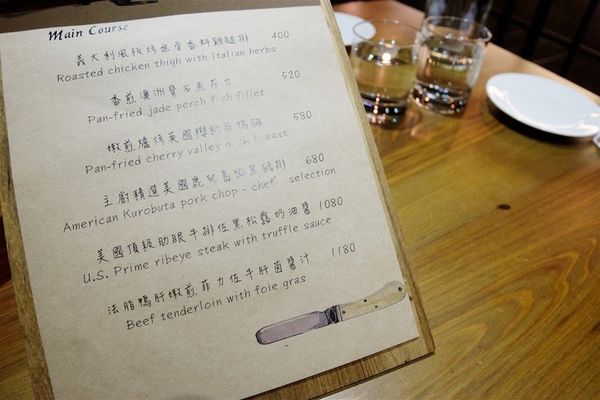 Main Course
義大利風板烤去骨香料雞腿排 400
Roasted chicken thigh with Italian herbs
香煎澳洲寶石魚菲力 520
Pan-fried jade perch fish fillet
嫩煎爐烤英國櫻桃谷鴨胸 580
Pan-fried cherry valley duck breast
主廚精選美國鹿兒島黑豬排 680
American Kurobuta pork chop - chef' selection
美國頂級肋眼牛排佐黑松露奶油醬 1080
U.S. Prime ribeye steak with truffle sauce
法脂鴨肝嫩煎菲力佐牛肝菌醬汁 1180
Beef tenderloin with foie gras